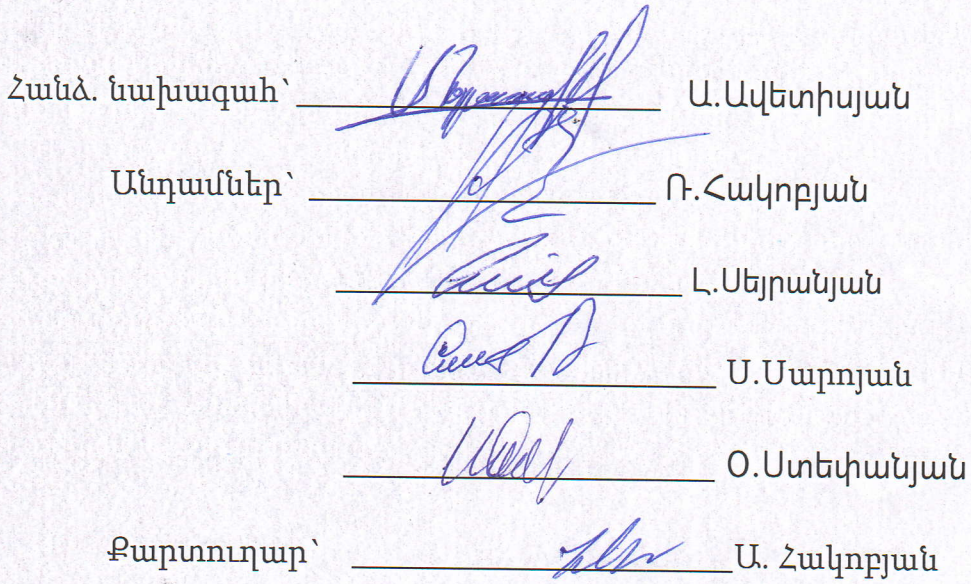 Հանձ. նախագահ՝ Ա.Ավետիսյան
Անդամներ՝ Ռ.Հակոբյան
Լ.Սեյրանյան
Ս.Սարոյան
Օ.Ստեփանյան
Քարտուղար՝ Ա. Հակոբյան